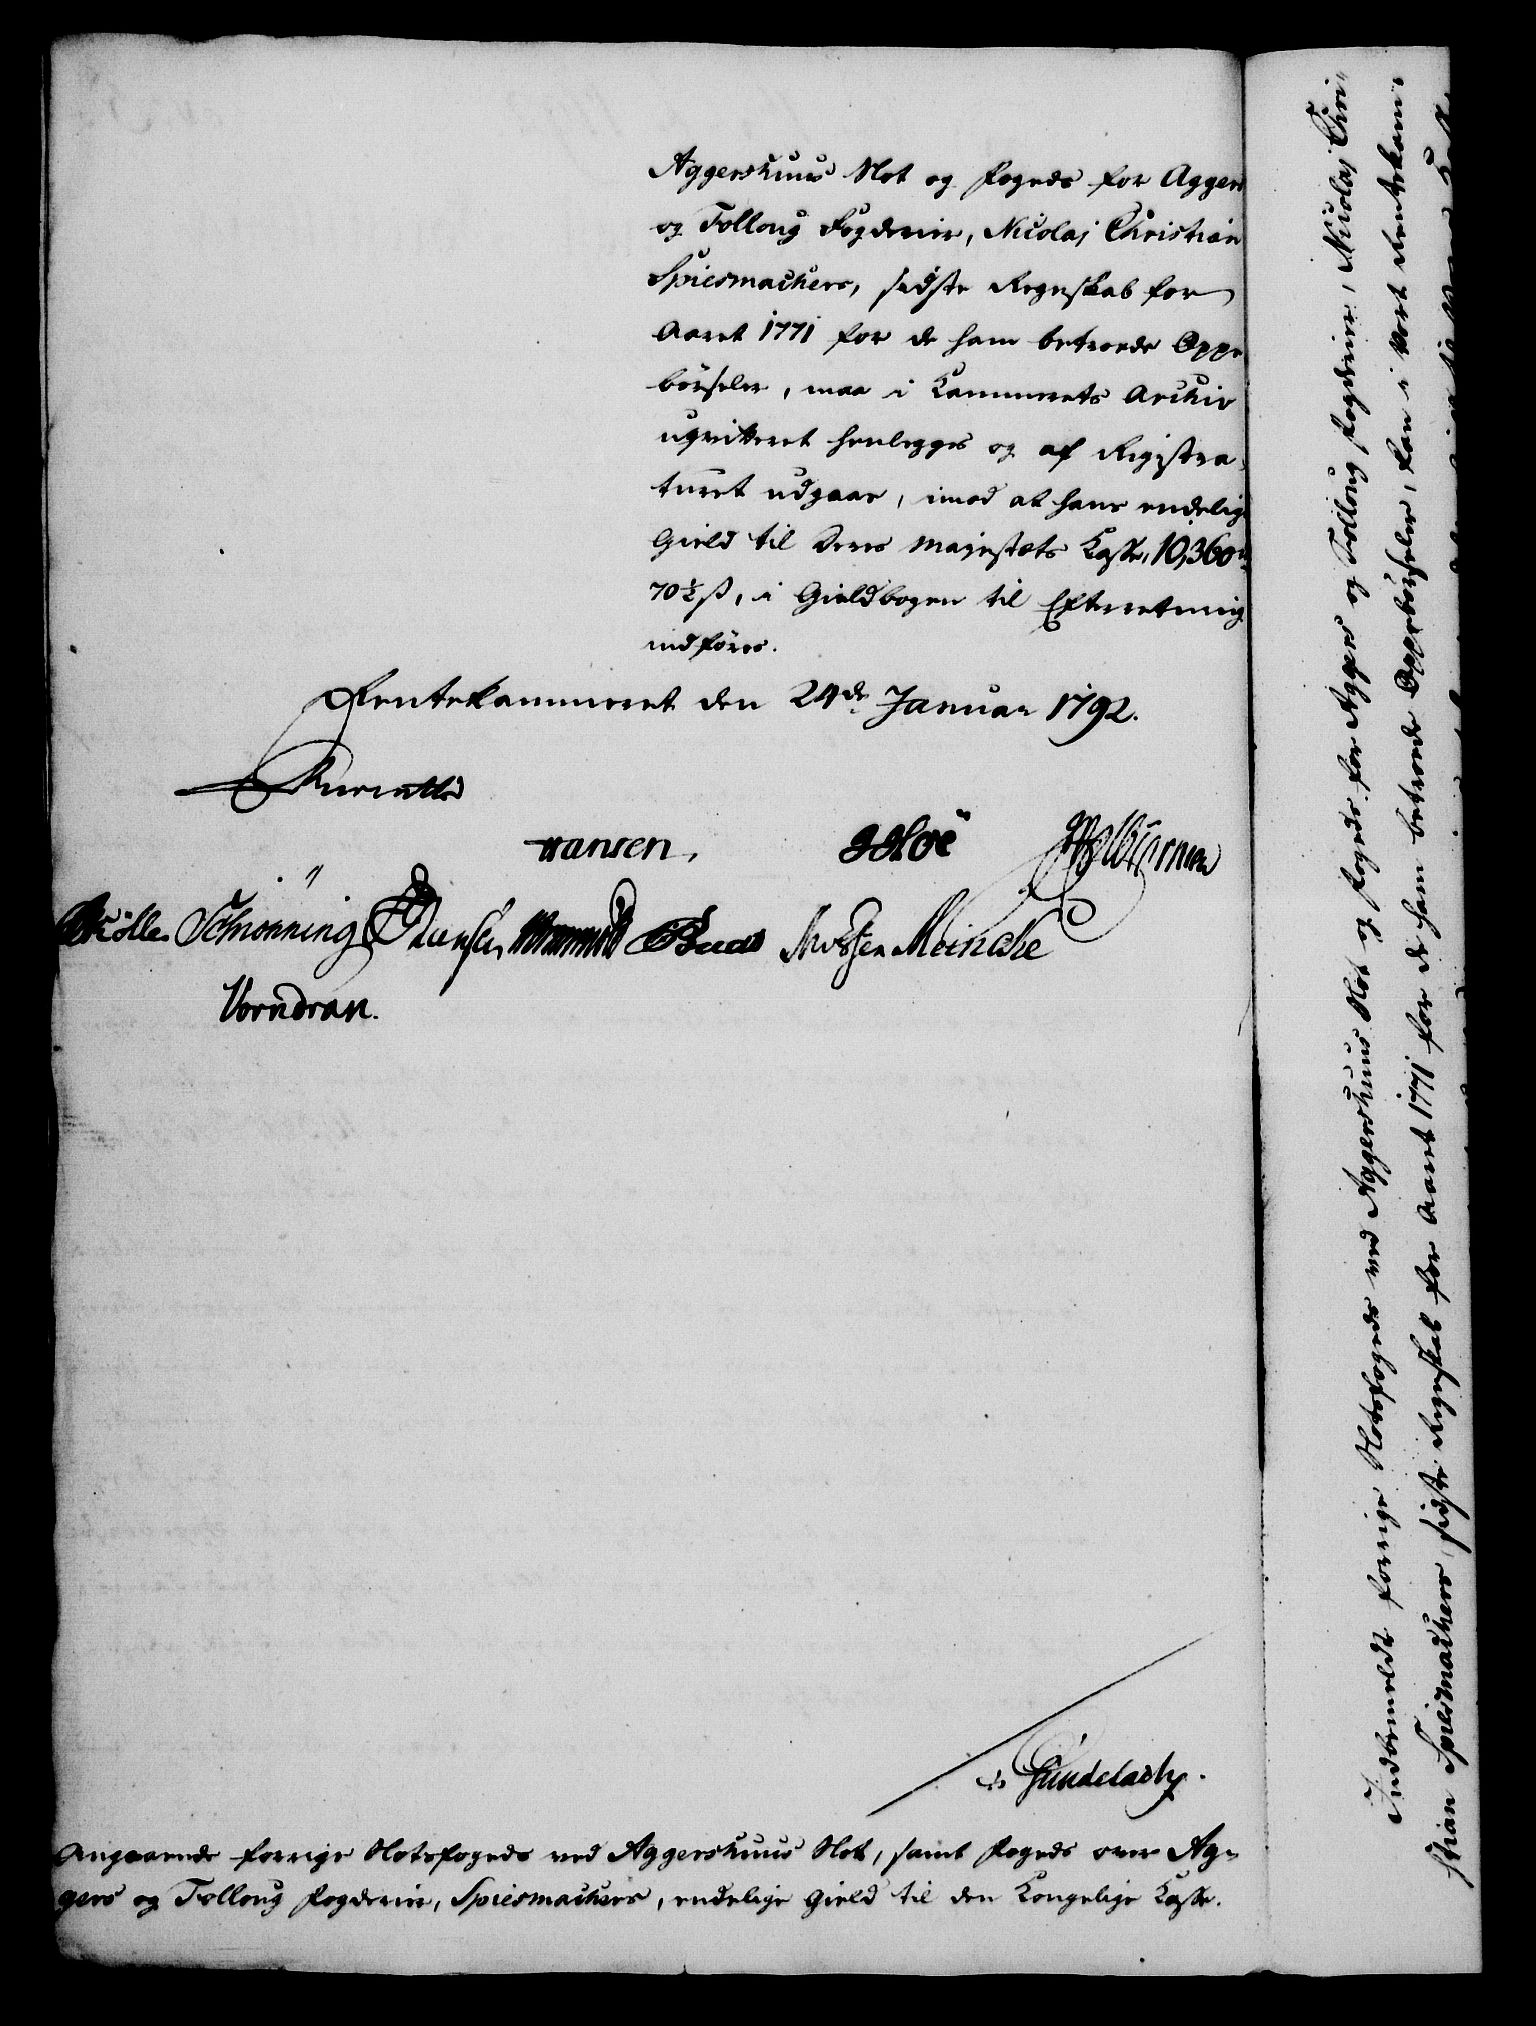 Aggershuus Slot og Fogeds for Aggers
og Follong Fogderier, Nicolaj Christian
Spiesmachers, sidste Regnskab for
Aaret 1771 for de ham betroede Oppe
börseler, maa i Kammerets Archiv
uqvitteret henlegges og af Registra-
turet udgaae, imod at hans endelige
Gield til Deres Majestæts Kasse, 10,360 rd
70½ ß, i Gieldbogen til Efterretning
indføres.
Rentekammeret den 24de Januar 1792.
Hansen. Hoë
Müller Schiönning Hansen Bads Meincke
Vorndran.
Gundelach.
Angaaende forrige Slotsfogeds ved Aggershuus Slot, samt Fogeds over Ag-
gers og Follong Fogderier, Spiesmachers, endelige Gield til den Kongelige Kasse.
Indbemeldt forrige Slotsfogeds ved Aggershuus Slot og Fogeds for Aggers og Follong Fogderier, Nicolaj Chri-
stian Spiesmachers, sidste Regnskab for Aaret 1771 for de ham betroede Oppebörseler, kan i Vort Rentekam-